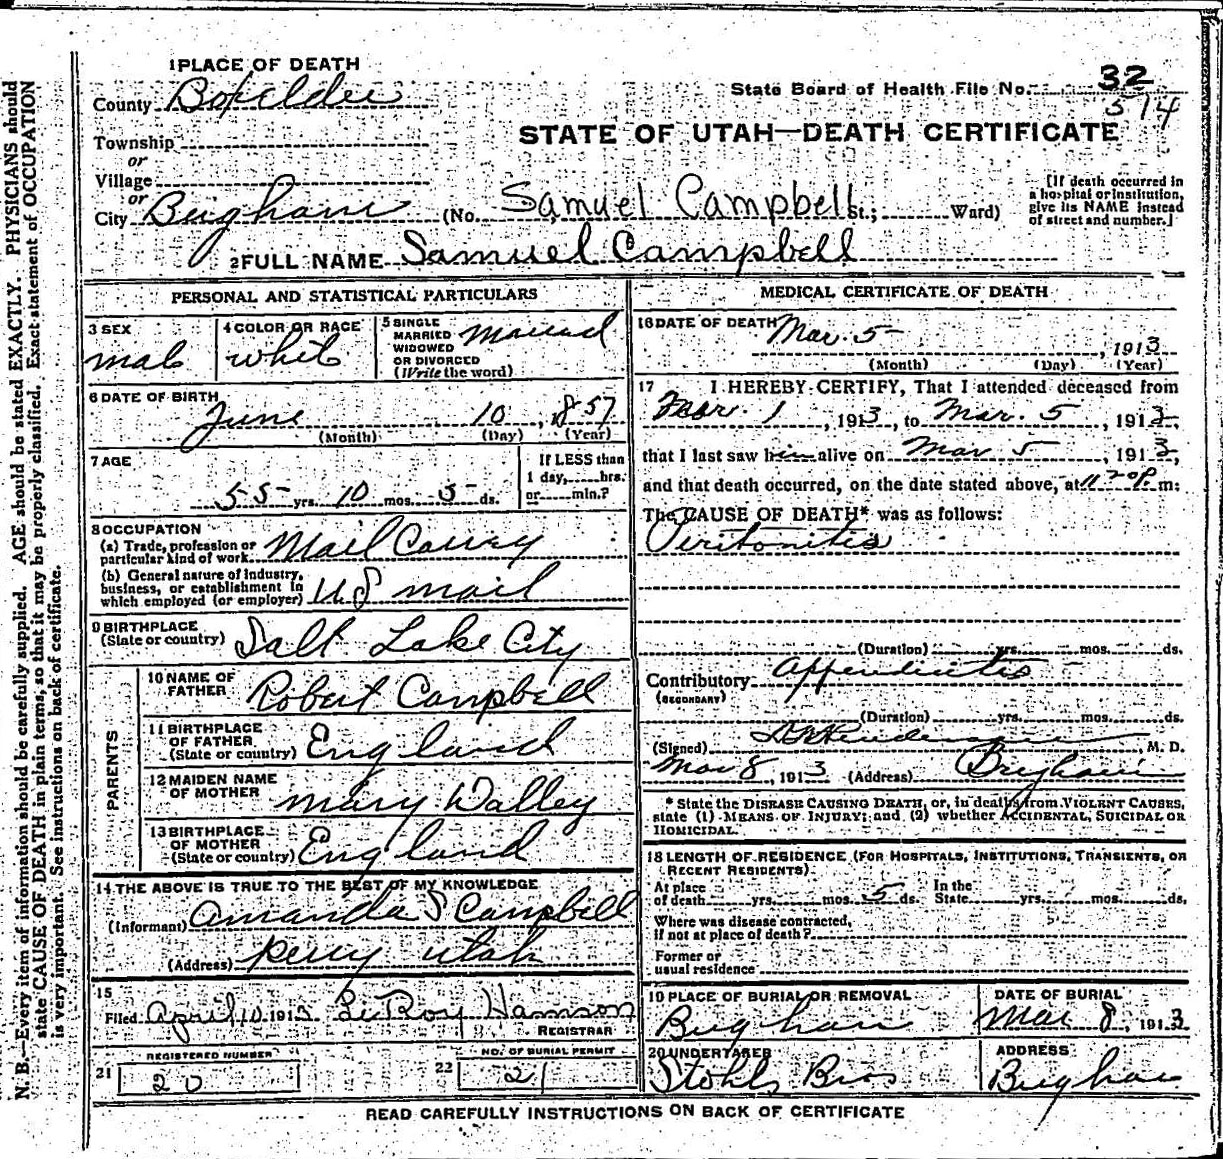 1 PLACE OF DEATH
County Boxelder
Township
or
Village
or
City Brigham (No. Samuel Campbell St.; Ward)
State Board of Health File No. 32
514
STATE OF UTAH—DEATH CERTIFICATE
[If death occurred in
a hospital or institution,
give its NAME instead
of street and number.]
2 FULL NAME Samuel Campbell
PERSONAL AND STATISTICAL PARTICULARS
3 SEX
male
4 COLOR OR RACE
white
5 SINGLE
MARRIED
WIDOWED
OR DIVORCED
(Write the word)
Married
6 DATE OF BIRTH
June 10, 1857
(Month) (Day) (Year)
7 AGE
55 yrs. 10 mos. 5 ds.
If LESS than
1 day, hrs.
or min.?
8 OCCUPATION
(a) Trade, profession or
particular kind of work Mail Carrey
(b) General nature of industry,
business, or establishment in
which employed (or employer) U S mail
9 BIRTHPLACE
(State or country) Salt Lake City
PARENTS
10 NAME OF
FATHER Robert Campbell
11 BIRTHPLACE
OF FATHER
(State or country) England
12 MAIDEN NAME
OF MOTHER Mary Walley
13 BIRTHPLACE
OF MOTHER
(State or country) England
14 THE ABOVE IS TRUE TO THE BEST OF MY KNOWLEDGE
(Informant) Amanda S Campbell
(Address) Perry Utah
15
Filed April 10 1913 LeRoy Hamson
REGISTRAR
21 REGISTERED NUMBER
20
22 NO. OF BURIAL PERMIT
21
MEDICAL CERTIFICATE OF DEATH
16 DATE OF DEATH Mar. 5, 1913
(Month) (Day) (Year)
17 I HEREBY CERTIFY, That I attended deceased from
Mar. 1, 1913, to Mar. 5, 1913,
that I last saw him alive on Mar 5, 1913,
and that death occurred, on the date stated above, at 11 20 P. m.
The CAUSE OF DEATH* was as follows:
Peritonitis
(Duration) yrs. mos. ds.
Contributory Appendicitis
(SECONDARY)
(Duration) yrs. mos. ds.
(Signed) , M. D.
Mar 8, 1913 (Address) Brigham
* State the DISEASE CAUSING DEATH, or, in deaths from VIOLENT CAUSES,
state (1) MEANS OF INJURY; and (2) whether ACCIDENTAL, SUICIDAL OR
HOMICIDAL.
18 LENGTH OF RESIDENCE (FOR HOSPITALS, INSTITUTIONS, TRANSIENTS, OR
RECENT RESIDENTS).
At place
of death yrs. mos. 5 ds.
In the
State yrs. mos. ds.
Where was disease contracted,
if not at place of death?
Former or
usual residence
19 PLACE OF BURIAL OR REMOVAL
Brigham
DATE OF BURIAL
Mar 8, 1913
20 UNDERTAKER
Stohls Bros
ADDRESS
Brigham
READ CAREFULLY INSTRUCTIONS ON BACK OF CERTIFICATE
N. B.—Every item of information should be carefully supplied. AGE should be stated EXACTLY. PHYSICIANS should
state CAUSE OF DEATH in plain terms, so that it may be properly classified. Exact statement of OCCUPATION
is very important. See instructions on back of certificate.